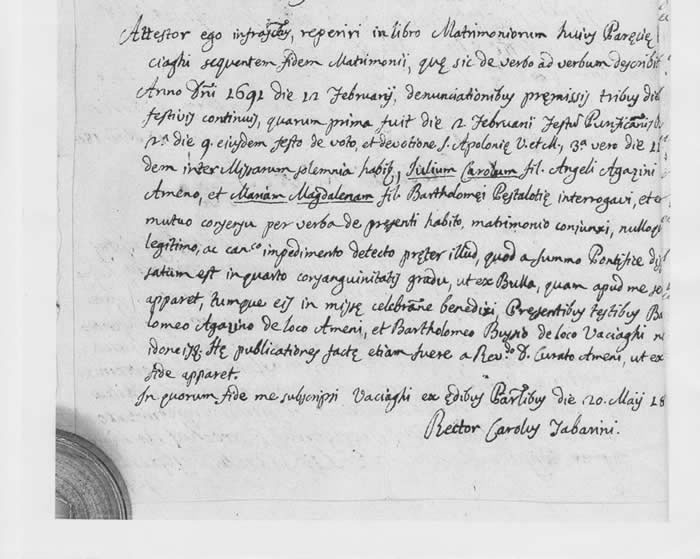 Attestor ego infrasctus, reperiri in libro Matrimoniorum huius Paręcię
ciaghi sequentem fidem Matrimonii, quę sic de verbo ad verbum describit
Anno Dñi 1691 die 12 Februarij, denunciationibus pręmissis tribus dieb
festivis continuis, quarum prima fuit die 2 Februarii festus Purificanis
2.a die 9 eiusdem festo de voto, et devotione S. Apolonię V. et M., 3.a vero die 11
dem inter Missarum solemnia habitis, Iulium Carolum fil. Angeli Agazini
Ameno, et Mariam Magdalenam fil. Bartholomęi Pestalotię interrogavi, et e
mutuo consensu per verba de pręsenti habito, matrimonio conjunxi, nullo q
legitimo, ac can.co impedimento detecto pręter illud, quod a summo Pontifice dis
satum est in quarto consanguinitatis gradu, ut ex Bulla, quam apud me se
apparet, tumque eis in missę celebrãne benedixi, Pręsentibus testibus Ba
lomeo Agazino de loco Ameni, et Bartholomeo de loco Vaciaghi n
idoneis. Hę publicationes factę etiam fuere a Rev.do D. Curato Ameni, ut ex
fide apparet.
In quorum fide me subscripsi Vaciaghi ex ędibus Par.libus die 20. Maij 18
Rector Carolus Tabarini.